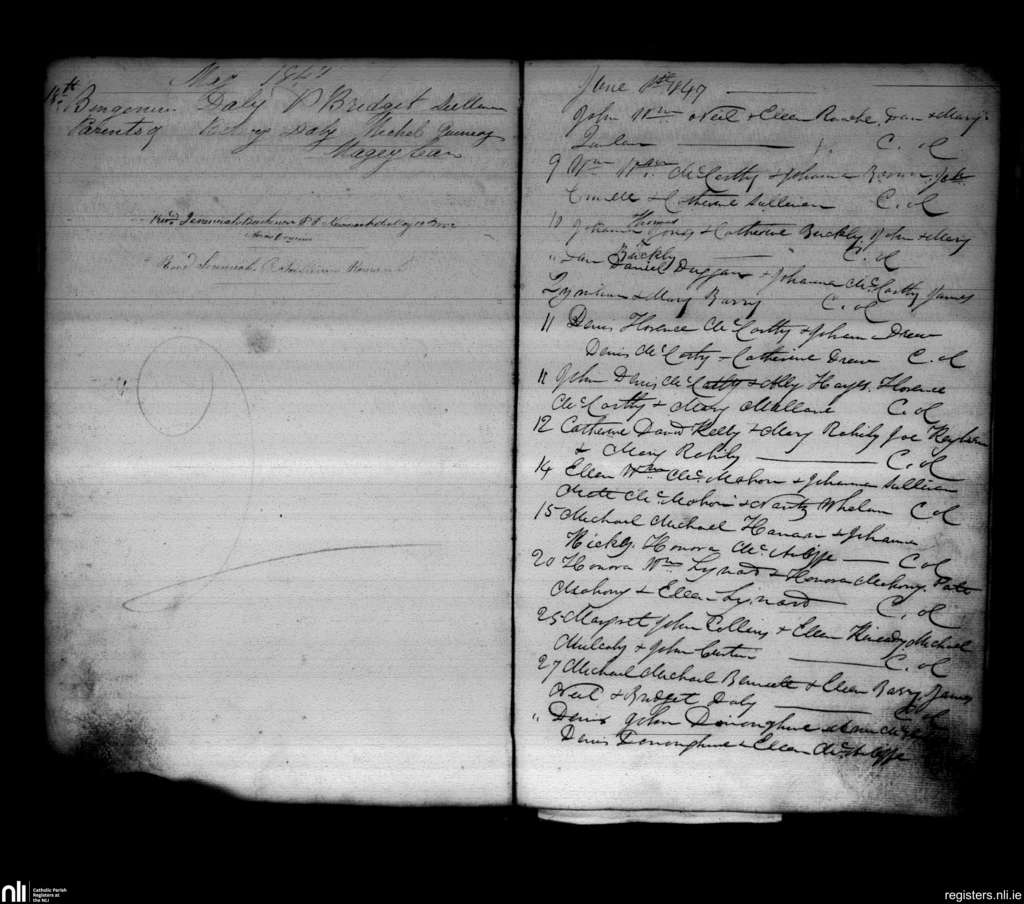 May 1847
18th Bengemin Daly P Bridget Sullivan
Parents of Daly Michel
Magey
Revd. Jeremiah P.P. Newmarket May 18
Revd Jeremiah
June 1st 1847
John Wm Neil & Ellen Roache. Dan & Mary
Quilan C. oL
9 Wm Wm. McCarthy & Johanna Brown. John
& Catherine Sullivan C. oL
10 Johanna Thomas Jones & Catherine Buckley John & Mary
Buckley C. oL
" Dan Daniel Duggan & Johanna McCarthy James
& Mary Barry C. oL
11 Denis Florence McCarthy & Johanna Drew
Denis McCarthy & Catherine Drew C. oL
11 John Denis McCarthy & Elly Hayes. Florence
McCarthy & Mary Mullane C. oL
12 Catherine David Kelly & Mary Rahily Joe
& Mary Rahily C. oL
14 Ellen Wm McMahon & Johanna Sullivan
Matt McMahon & Whelan C oL
15 Michael Michael Hanan & Johanna
Hickey. Honora McAuliffe C oL
20 Honora Wm Lynard & Honora Mahony. Patk
Mahony & Ellen Lynard C. oL
25 Margret John Collins & Ellen Michael
Mulcahy & John Curtin C. oL
27 Michael Michael Bennett & Ellen Barry James
Neil & Bridget Daly C. oL
" Denis John Donoghue &
Denis Donoghue & Ellen McAuliffe
nli
Catholic Parish
Registers at
the NLI
registers.nli.ie